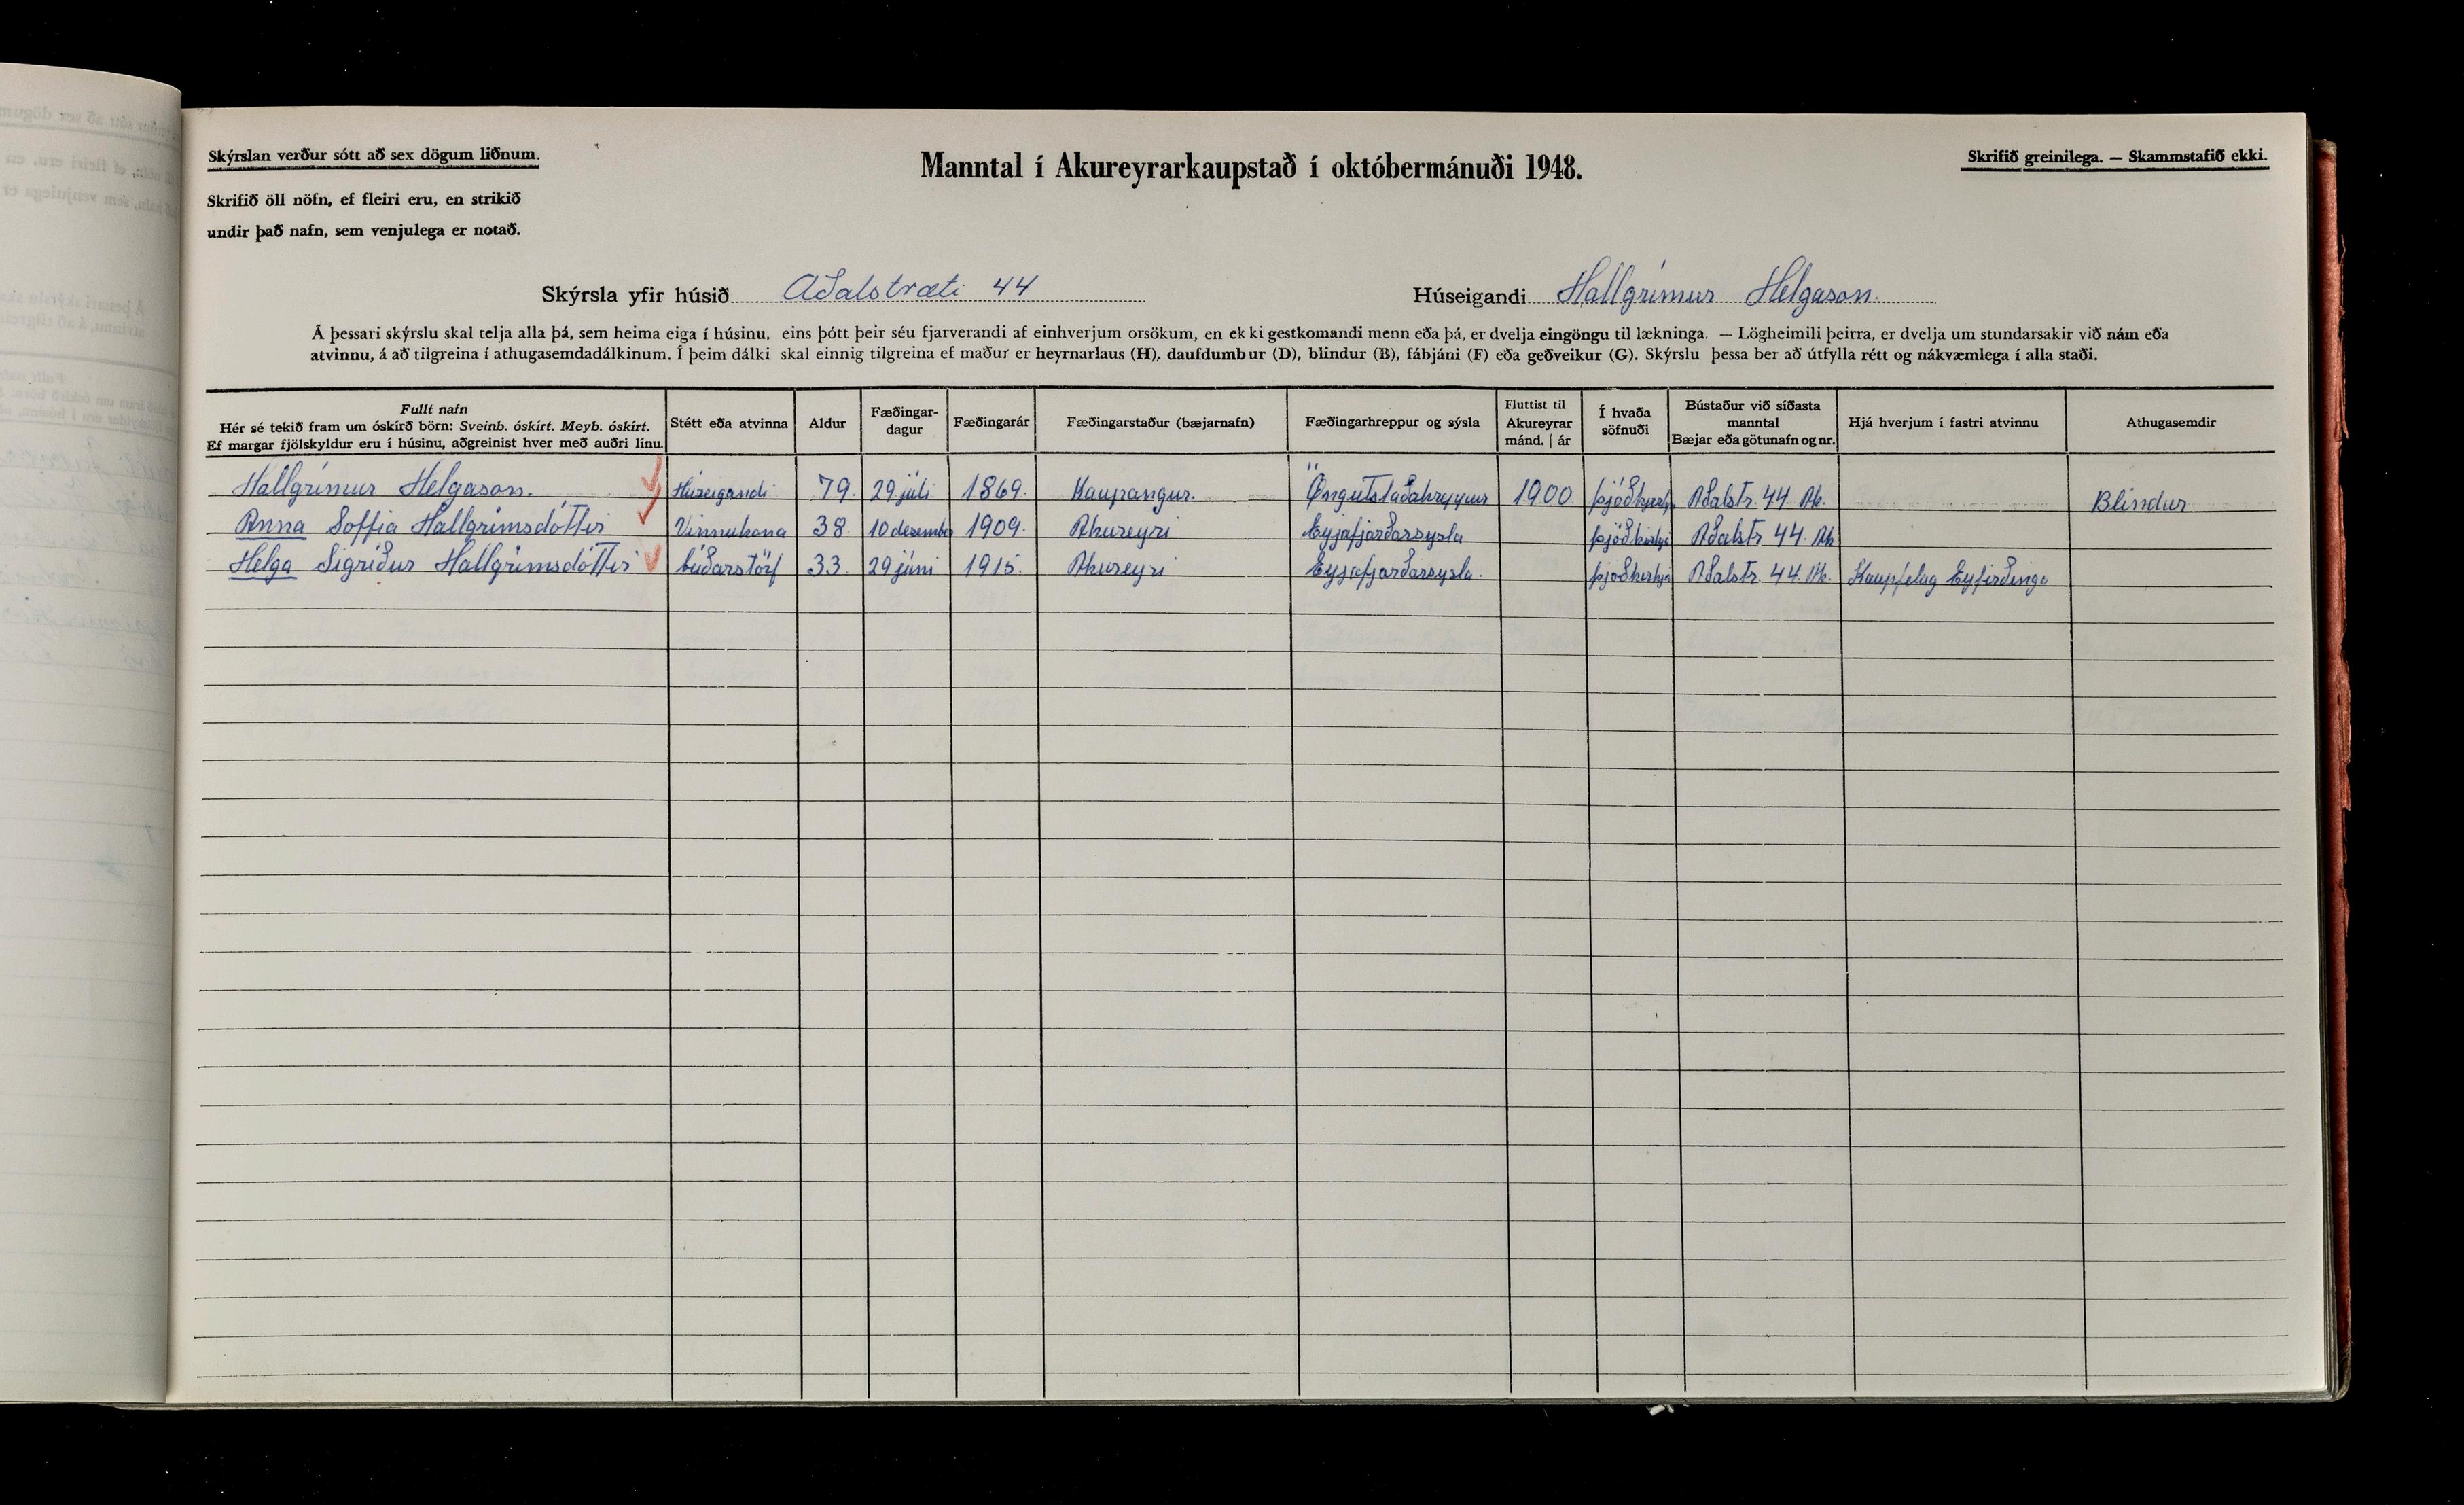 Skýrslan verður sótt að sex dögum liðnum.
Manntal í Akureyrarkaupstað í októbermánuði 1948.
Skrifið greinilega. — Skammstafið ekki.
Skrifið öll nöfn, ef fleiri eru, en strikið
undir það nafn, sem venjulega er notað.
Skýrsla yfir húsið Aðalstræti 44 Húseigandi Hallgrímur Helgason.
Á þessari skýrslu skal telja alla þá, sem heima eiga í húsinu, eins þótt þeir séu fjarverandi af einhverjum orsökum, en ekki gestkomandi menn eða þá, er dvelja eingöngu til lækninga. — Lögheimili þeirra, er dvelja um stundarsakir við nám eða
atvinnu, á að tilgreina í athugasemdadálkinum. Í þeim dálki skal einnig tilgreina ef maður er heyrnarlaus (H), daufdumbur (D), blindur (B), fábjáni (F) eða geðveikur (G). Skýrslu þessa ber að útfylla rétt og nákvæmlega í alla staði.
Fullt nafn
Hér sé tekið fram um óskírð börn: Sveinb. óskírt. Meyb. óskírt.
Ef margar fjölskyldur eru í húsinu, aðgreinist hver með auðri línu.
Stétt eða atvinna
Aldur
Fæðingar-
dagur
Fæðingarár
Fæðingarstaður (bæjarnafn)
Fæðingarhreppur og sýsla
Fluttist til
Akureyrar
mánd. | ár
Í hvaða
söfnuði
Bústaður við síðasta
manntal
Bæjar eða götunafn og nr.
Hjá hverjum í fastri atvinnu
Athugasemdir
Hallgrímur Helgason. Húseigandi 79. 29 júli 1869. Kaupangur. Öngulstaðahreppur 1900 Aðalstr. 44. Ak. Blindur
Anna Soffia Hallgrímsdóttir Vinnukona 38. 10 desember 1909. Akureyri Eyjafjarðarsysla þjóðkirkja Aðalstr. 44. Ak
Helga Sigríður Hallgrímsdóttir búðarstörf 33. 29 júni 1915. Akureyri Eyjafjarðarsysla. þjóðkirkja Aðalstr. 44. Ak. Kaupfelag Eyfirðinga